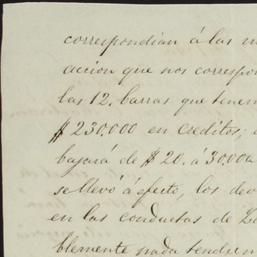 correspondian á las
accion que nos correspon
las 12. barras que tenem
$ 230.000 en creditos;
bajará de $ 20. á 30.000
se llevó á efecto, los dev
en las conductas de
blemente nada tendrem